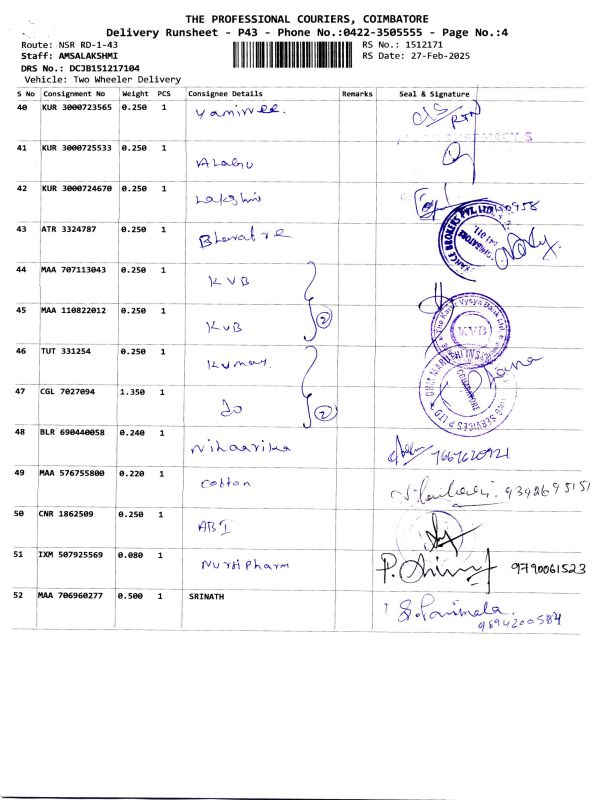 THE PROFESSIONAL COURIERS, COIMBATORE
Delivery Runsheet - P43 - Phone No.:0422-3505555 - Page No.:4
Route: NSR RD-1-43
RS No.: 1512171
Staff: AMSALAKSHMI
RS Date: 27-Feb-2025
DRS No.: DCJB151217104
Vehicle: Two Wheeler Delivery
S No Consignment No Weight PCS Consignee Details Remarks Seal & Signature
40 KUR 3000723565 0.250 1
41 KUR 3000725533 0.250 1 Alagu
42 KUR 3000724670 0.250 1 Lakshmi
43 ATR 3324787 0.250 1
44 MAA 707113043 0.250 1 KVB
45 MAA 110822012 0.250 1 KVB 2
46 TUT 331254 0.250 1 Kumar
47 CGL 7027094 1.350 1 Do 2
48 BLR 690440058 0.240 1 Nihaarika
49 MAA 576755800 0.220 1 Cotton 9392695151
50 CNR 1862509 0.250 1 ABI
51 IXM 507925569 0.080 1 Nutri Pharm 9790061523
52 MAA 706960277 0.500 1 SRINATH S. Parimala
9894200584